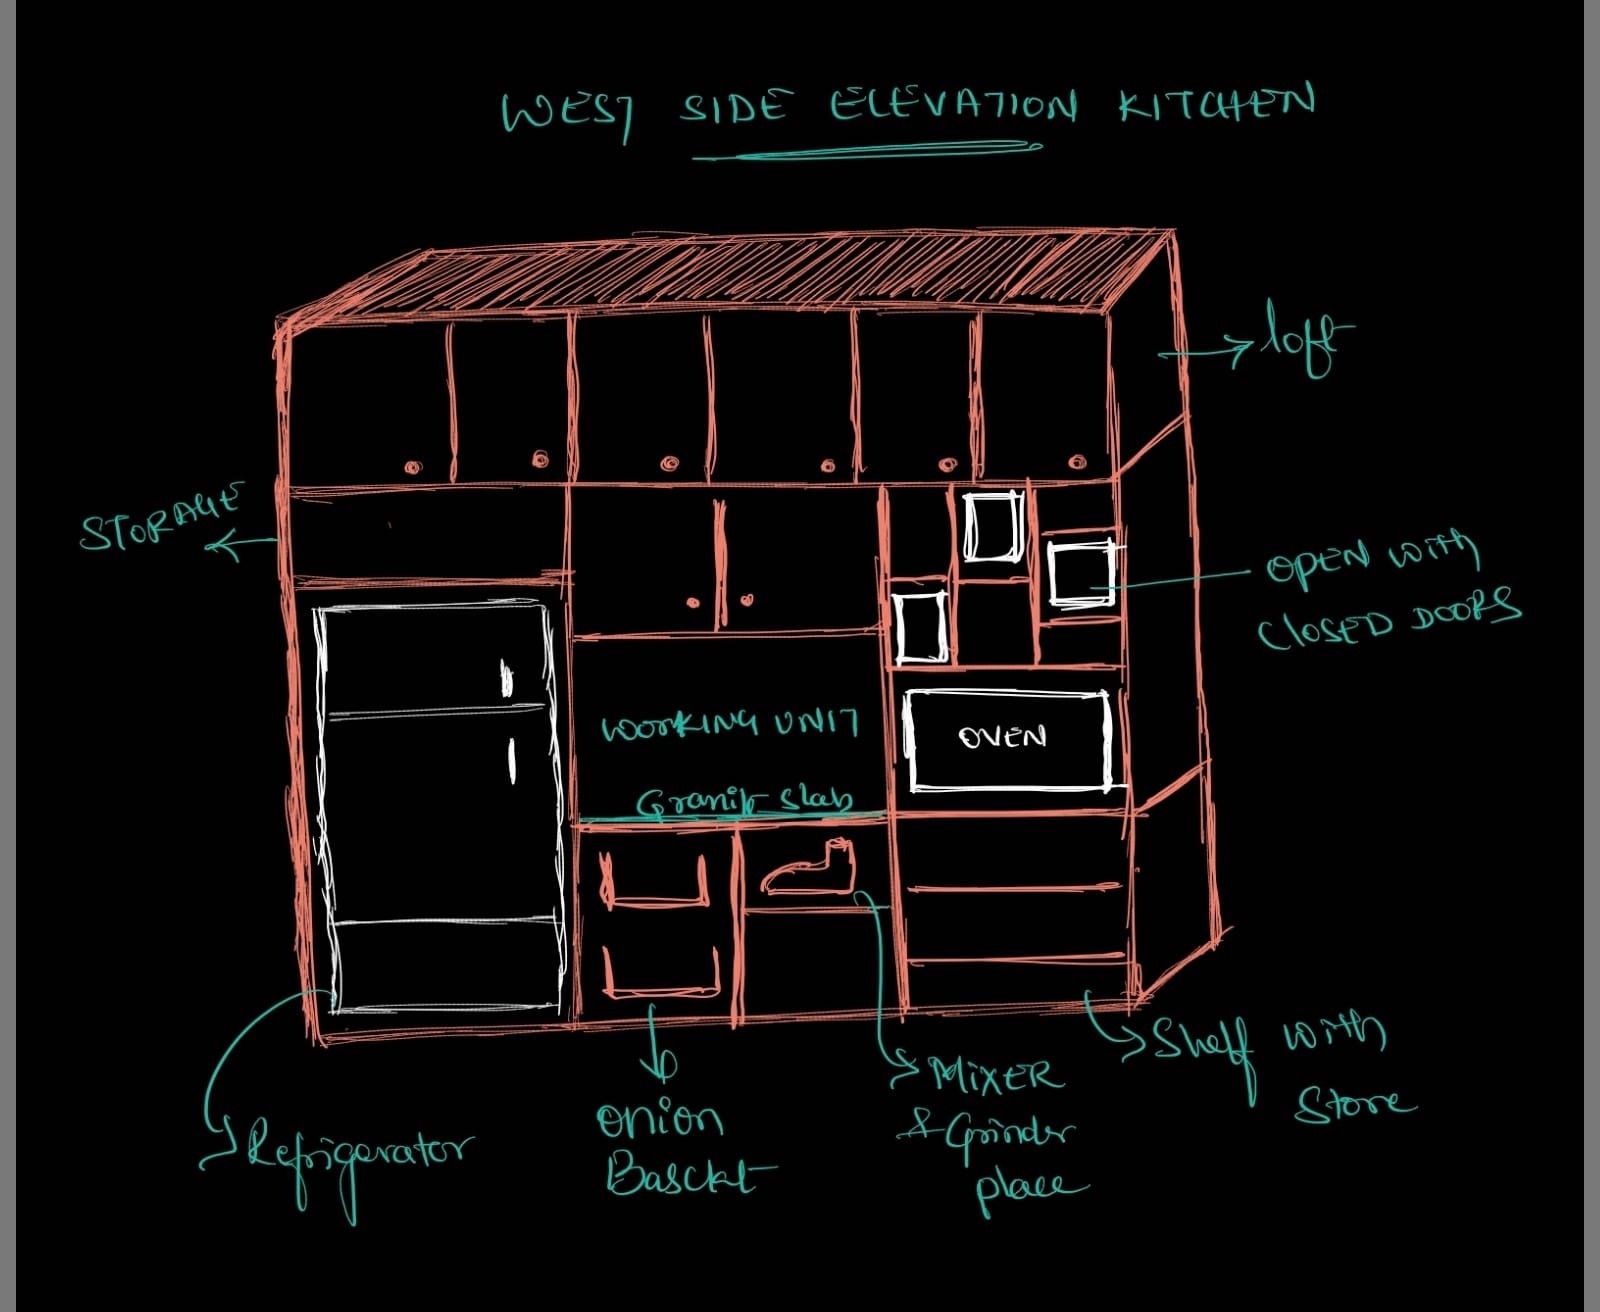 WEST SIDE ELEVATION KITCHEN
loft
STORAGE
OPEN with
Closed DOORS
WORKING UNIT
OVEN
Granit slab
Shelf with
Store
MIXER
& Grinder
place
onion
Basckt
Refrigerator